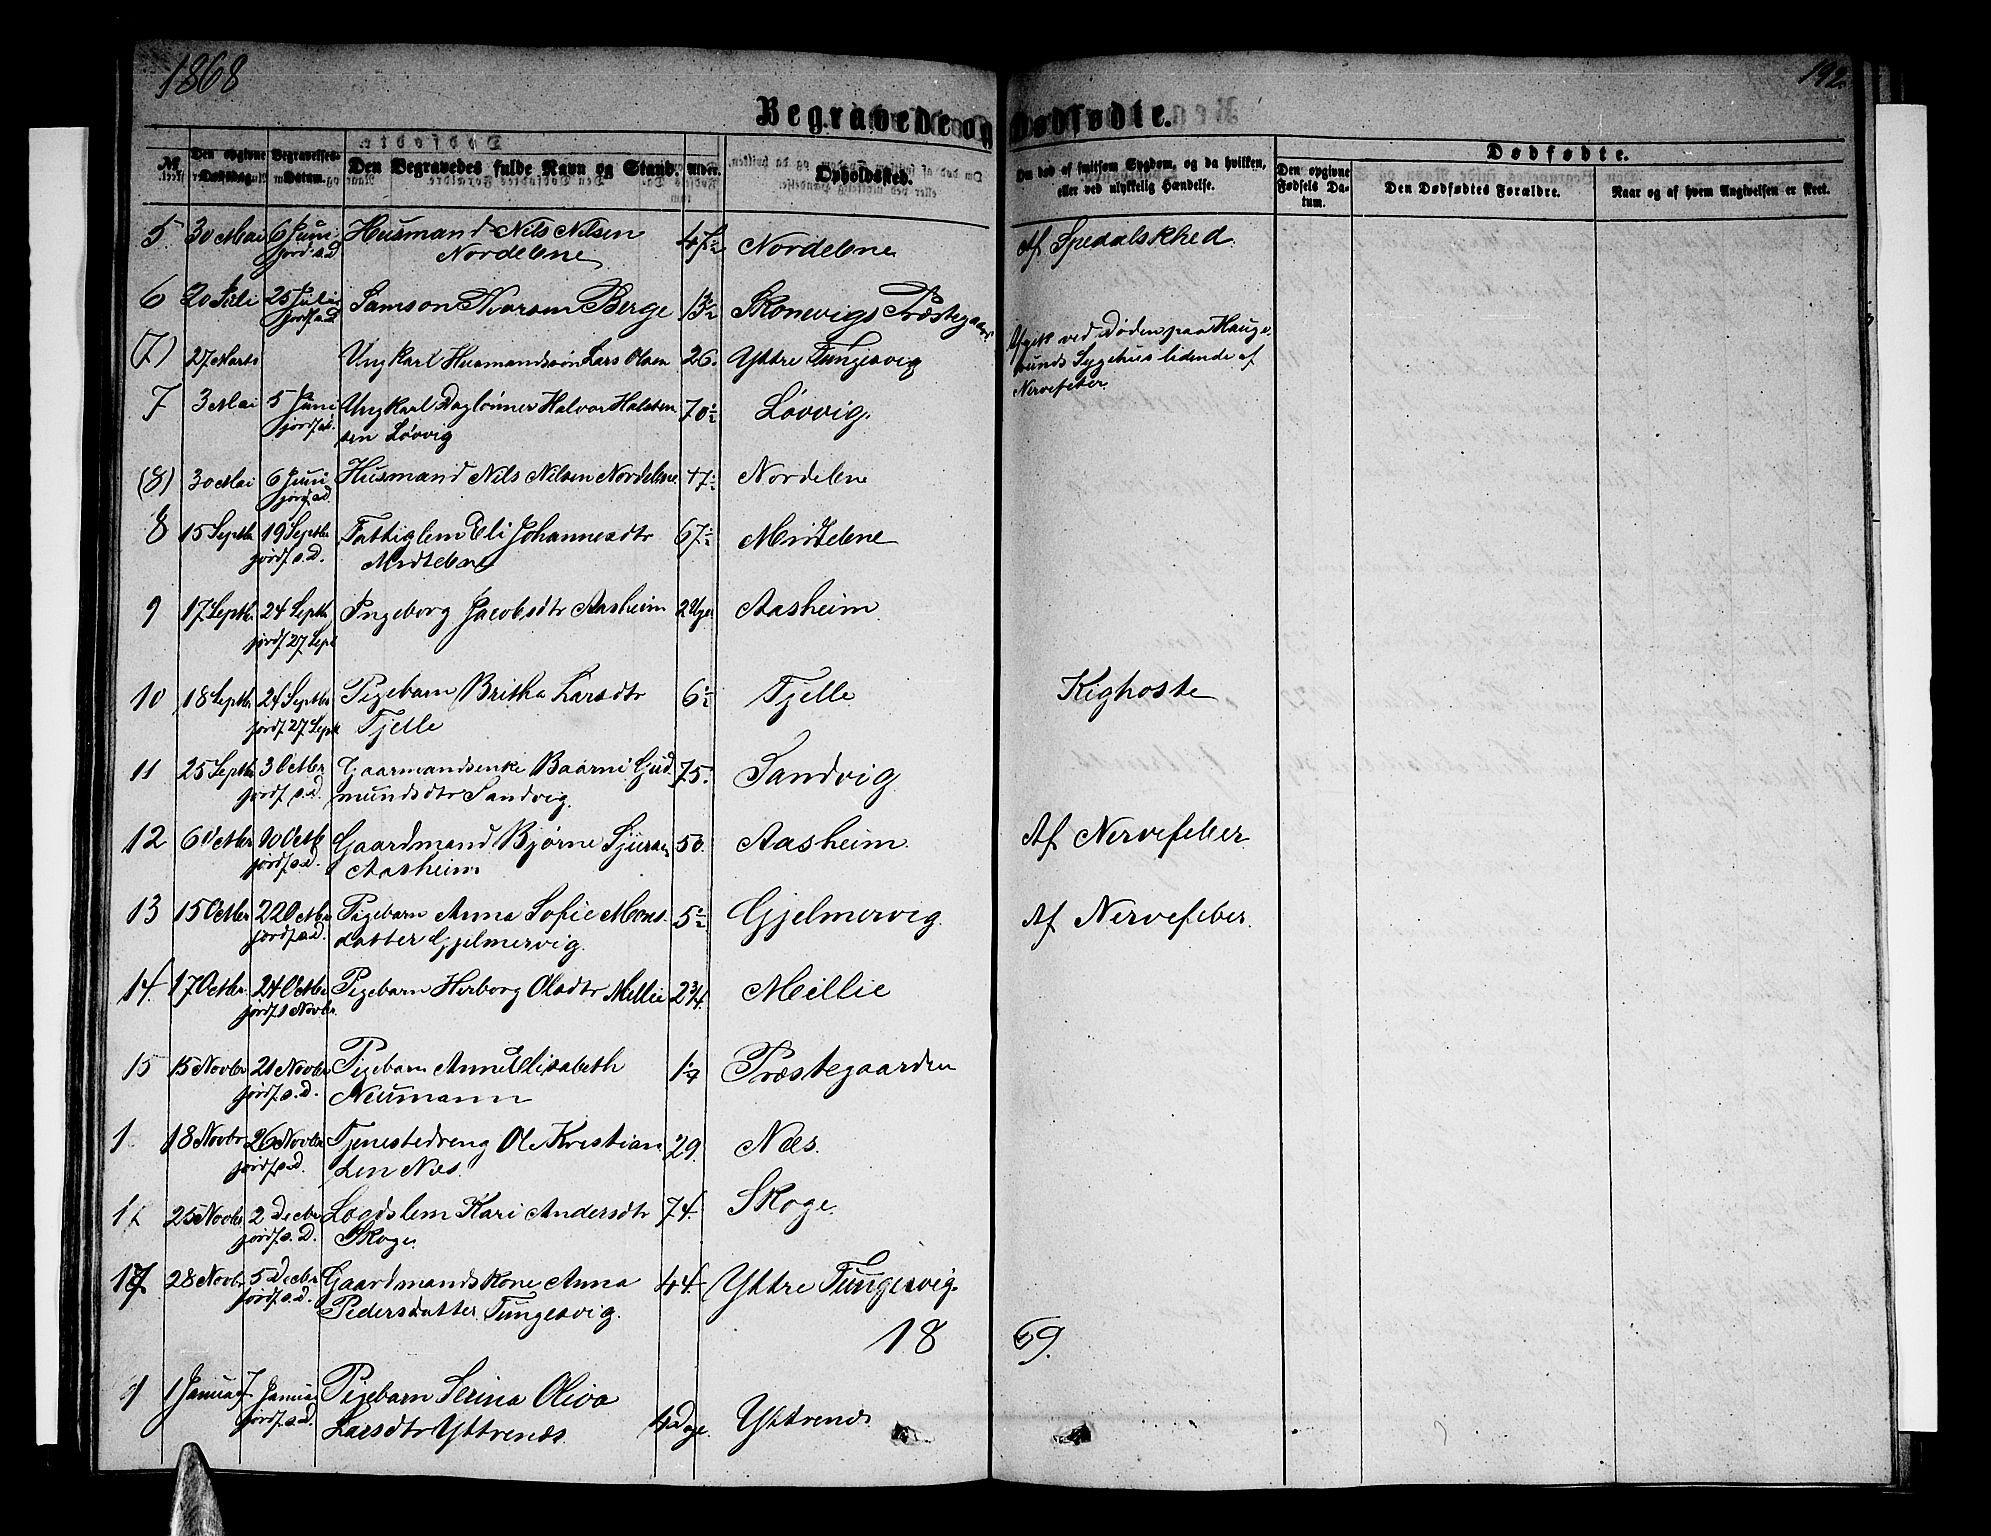 1868
192.
Begravede og Dødfødte.
No. Den opgivne Dødsdag. Begravelses-Datum. Den Begravedes fulde Navn og Stand. Alder. Opholdssted. Om død af smitsom Sygdom, og da hvilken, eller ved ulykkelig Hændelse.
Dødfødte.
Den opgivne Fødsels Datum. Den Dødfødtes Forældre. Naar og af hvem Angivelsen er skeet.
5. 30 Mai 6 Juni Husmand Nils Nilsen 47½ Nordelene Af Spedalskhed.
jordf. s.d. Nordelene
6 20 Juli 25 Juli Samson Ivarsen Berge Skonevigs Præstegaard
jordf. s.d.
(7) 27 Marts Ungkarl Husmandssøn Lars Olsen 26. Yttre Tungesvig Afgik ved Døden paa Hauge-
sunds Sygehus lidende af
Nervefeber.
7 3 Mai 5 Juni Ungkarl Daglønner Halvor Halsten 70½ Løvvig.
jordf. s.d. sen Løvvig
(8) 30 Mai 6 Juni Husmand Nils Nilsen Nordelene 47½ Nordelene
jordf. s.d.
8 15 Septbr 19 Septbr Fattiglem Eli Johannesdtr 67½ Midtelene
jordf. s.d. Midtelene
9 17 Septbr 24 Septbr Ingeborg Jacobsdtr Aasheim 2 Uger Aasheim.
jordf. 27 Sept
10 18 Septbr 24 Septbr Pigebarn Britha Larsdtr 6½ Tjelle Kighoste
jordf. 27 Sept Tjelle
11 25 Septbr 3 Octbr Gaarmandsenke Baarni Gud 75. Sandvig
jordf. s.d. mundsdtr Sandvig.
12 6 Octbr 10 Octb Gaardmand Bjørne Sjursen 50. Aasheim. Af Nervefeber.
jordf. s.d. Aasheim
13 15 Octbr 22 Octbr Pigebarn Anna Sofie Mons 5½ Gjelmervig. Af Nervefeber.
jordf. s.d. datter Gjelmervig.
14. 17 Octbr. 24 Octbr Pigebarn Herborg Olsdtr Mellie 2¾ Meillie
jordf. 1 Novbr.
15 15 Novbr 21 Novbr Pigebarn Anne Elisabeth Præstegaarden
jordf. s.d. Neumann
1 18 Novbr 26 Novbr Tjenestedreng Ole Kristian 29. Næs.
jordf. s.d. sen Næs.
25 Novbr 2 Decbr Loegdslem Kari Andersdtr 74. Skoge.
jordf. s.d. Skoge.
17 28 Novbr 5 Decbr Gaardmandskone Anna 44. Yttre Tungesvig.
jordf. s.d. Pedersdatter Tungesvig.
18 69.
1 1 Januar 7 Januar Pigebarn Serina Oliva
jordf. s.d. Larsdtr Yttrenæs. 4 Dge. Yttrenæs